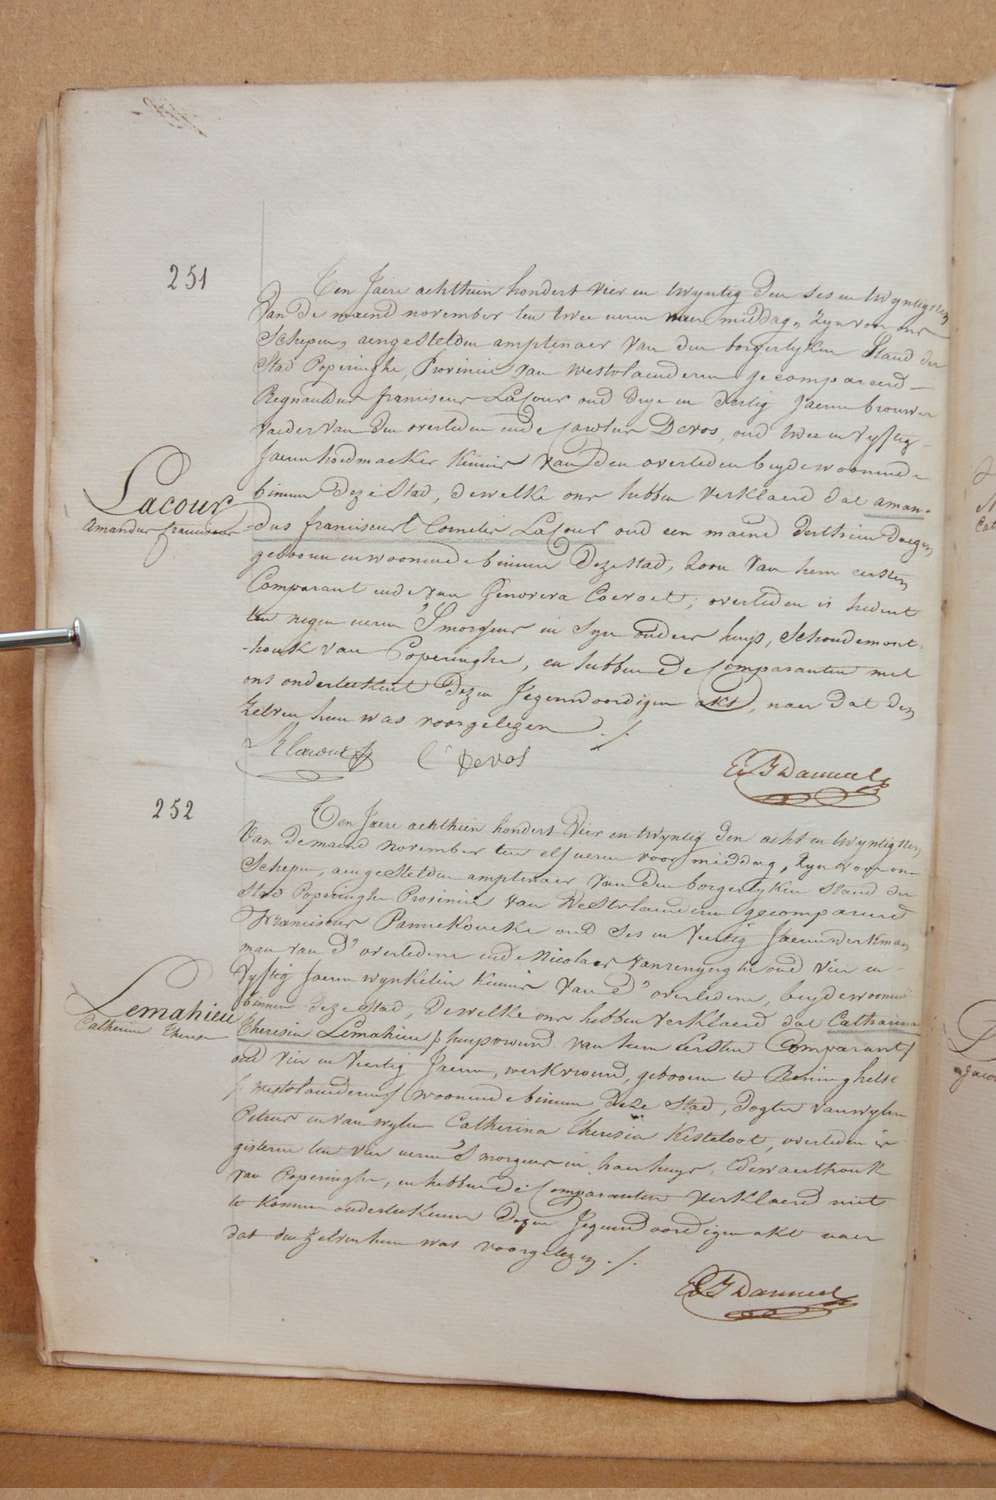 251
Ten Jaere achthien hondert vier en twyntig den ses en twyntigsten
van de maend november ten twee uren naer middag, zyn voor ons
Schepen, aengestelden amptenaer van den borgerlyken Stand der
Stad Poperinghe, Provincie van westvlaenderen gecompareerd
Regnaudus franciscus LaCour oud dryе en dertig Jaeren brouwer
vader van den overleden ende Carolus Devos, oud twee en vyftig
Jaeren hoedmaeker kennis van den overleden beyde woonende
binnen deze Stad, dewelke ons hebben verklaerd dat aman-
Lacour
Amandus franciscus
dus franciscus Cornelis LaCour oud een maend derthien daegen
geboren en woonende binnen deze stad, zoon van hem eersten
Comparant ende van Genoveva Coevoet, overleden is heden
ten negen uren S'morgens in zyn ouders huys, Schoudemont-
-houk van Poperinghe, en hebben de Comparanten met
ons onderteekent dezen Jegenwoordigen akt, naer dat den
zelven hun was voorgelezen ./.
R lacour C Devos
E. J Danneel
252
Ten Jaere achthien hondert vier en twyntig den acht en twyntigsten
van de maend november ten elf uren voor middag, zyn voor ons
Schepen, aengestelden amptenaer van den borgerlyken stand der
Stad Poperinghe Provincie van Westvlaenderen gecompareerd
Franciscus Pannekoucke oud ses en veertig Jaeren werkman
man van d' overledene ende Nicolaes Vanrenyerghe oud vier en
vyftig Jaeren wynkelier kennis van d' overledene, beyde woonende
binnen deze stad, dewelke ons hebben verklaerd dat Catharina
Lemahieu
Catherine Theresia
Theresia Lemahieu / huysvrouw van hem Eersten Comparant /
oud vier en veertig Jaeren, werkvrouw, geboren te Reninghelst
/ westvlaenderen / woonende binnen deze Stad, dogter van wylen
Petrus en van wylen Catherina Theresia Kesteloot, overleden is
gisteren ten vier uren S'morgens in haer huys, Edewaerthouk
van Poperinghe, en hebben de Comparanten verklaerd niet
te konnen onderteekenen dezen Jegenwoordigen akt naer
dat den zelven hun was voorgelezen ./.
E J Danneel